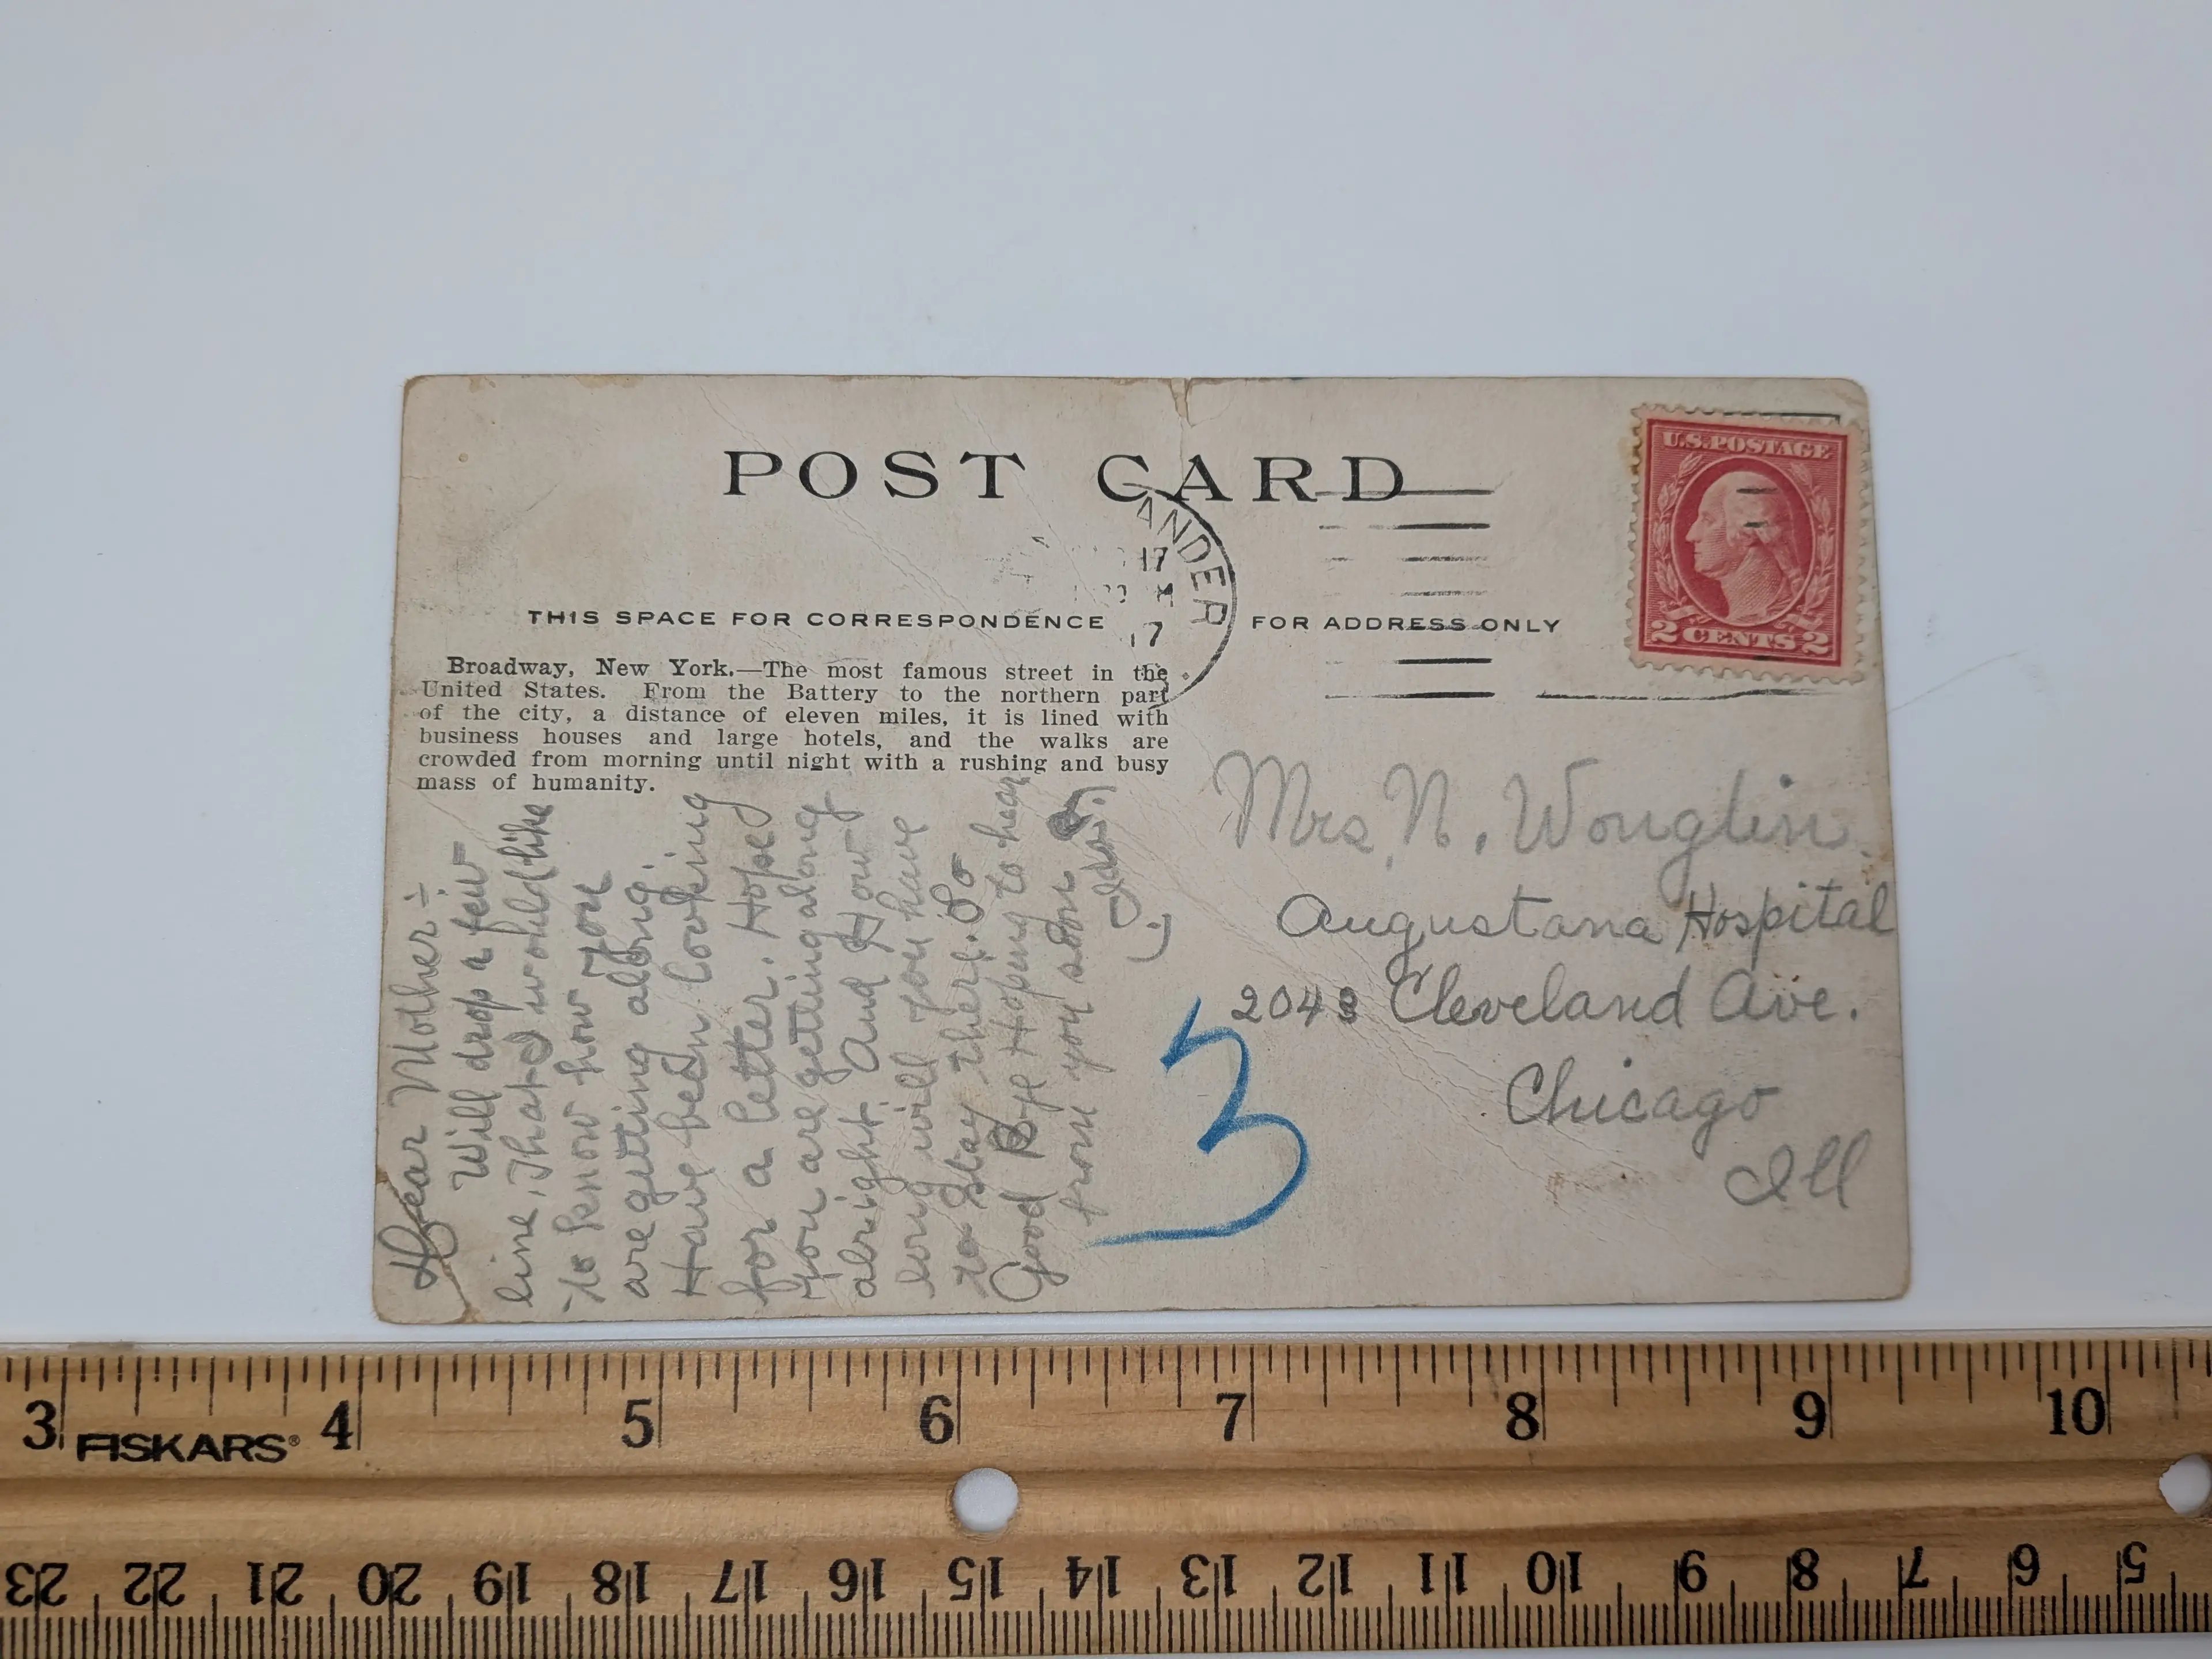 POST CARD
ANDER
17
17
THIS SPACE FOR CORRESPONDENCE
FOR ADDRESS ONLY
U.S. POSTAGE
2 CENTS 2
Broadway, New York.—The most famous street in the
United States. From the Battery to the northern part
of the city, a distance of eleven miles, it is lined with
business houses and large hotels, and the walks are
crowded from morning until night with a rushing and busy
mass of humanity.
Dear Mother÷
Will drop a few
line. That I would like
to know how you
are getting along.
Have been looking
for a letter. Hope
you are getting along
alright. And How
long will you have
to stay there. So
Good Bye Hoping to hear
from you soon
Mrs. N. Wonglin.
Augustana Hospital
2043 Cleveland Ave.
Chicago
Ill
3
3 4 5 6 7 8 9 10
FISKARS®
23 22 21 20 19 18 17 16 15 14 13 12 11 10 9 8 7 6 5